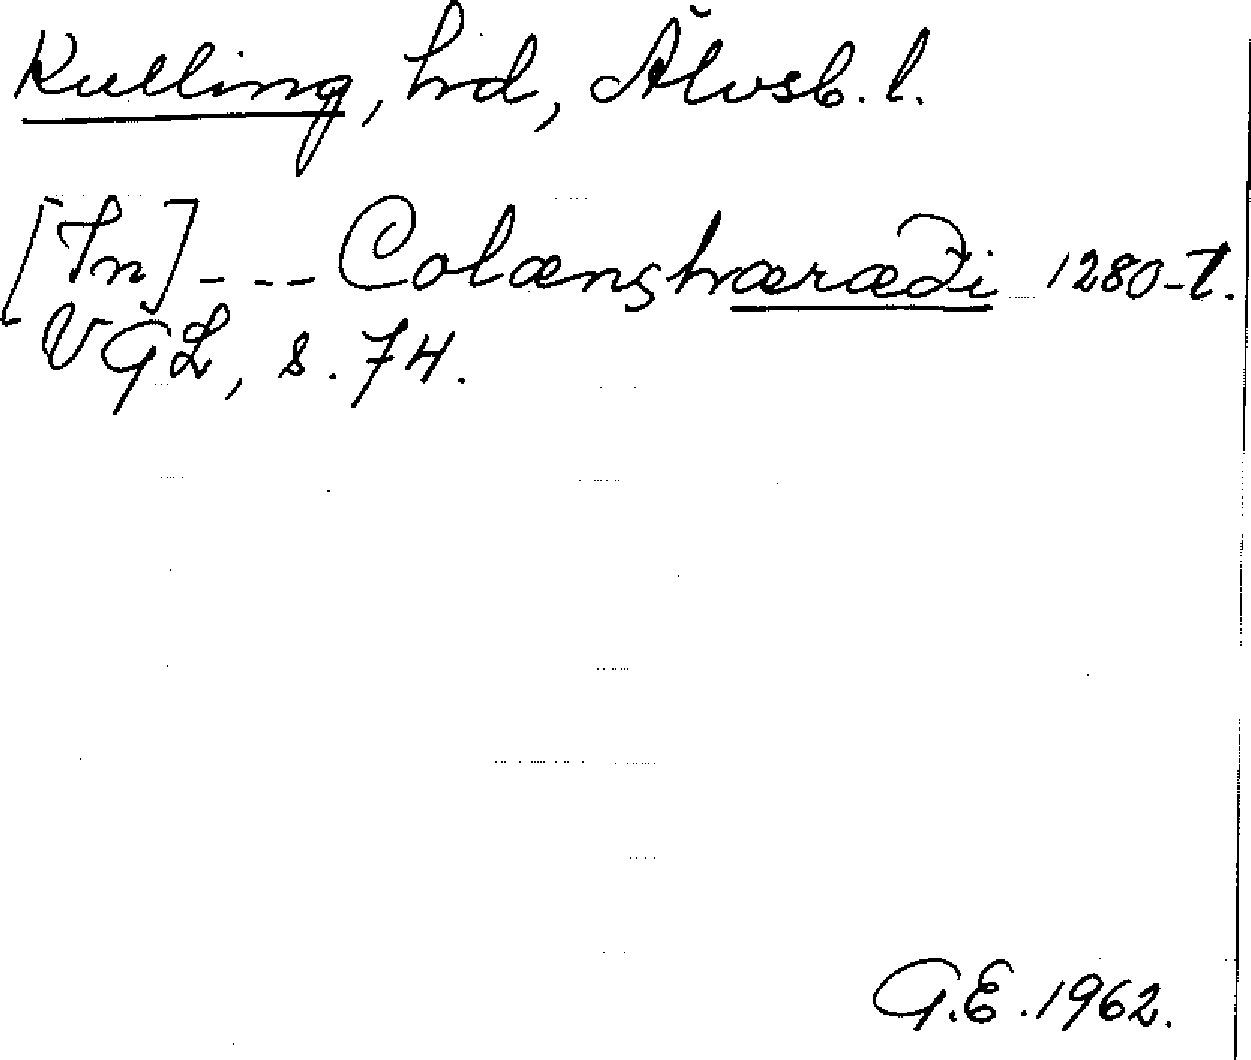 Kulling, hd, Älvsb. l.
[In] --- Colænshæræði 1280-t.
VGL, s. 74.
G.E. 1962.